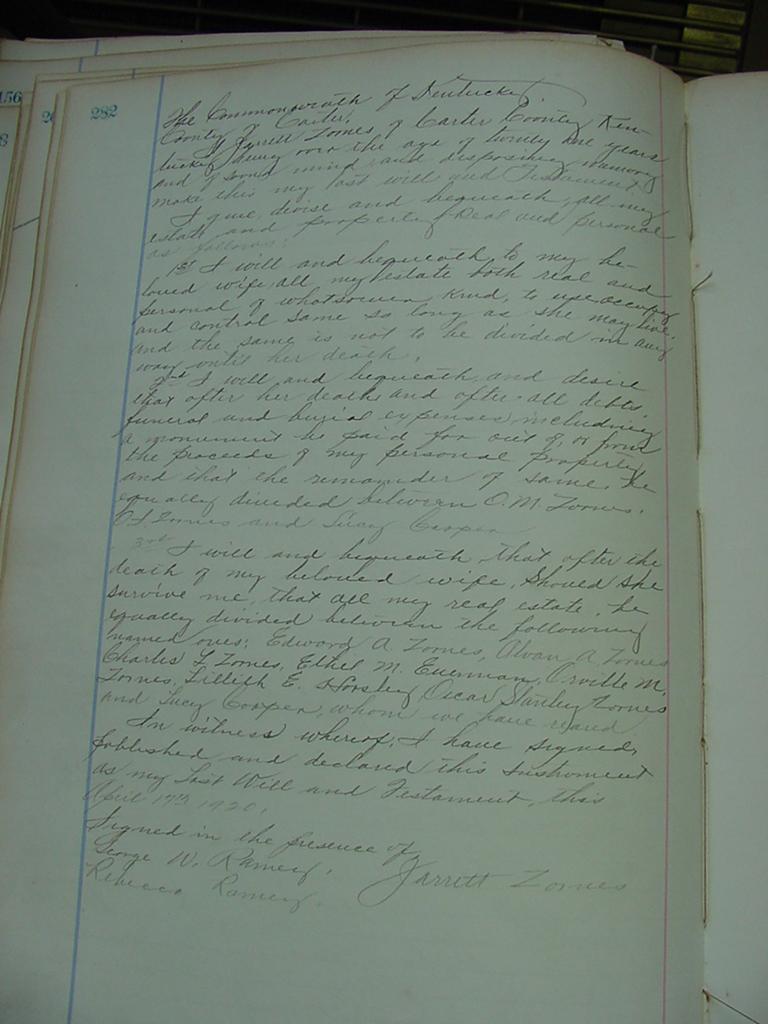 156
282
The Commonwealth of Kentucky
County of Carter.
I, Jarrett Zornes of Carter County Ken-
tucky being over the age of twenty one years
and of sound mind and disposing memory
make this my last will and Testament
I give, devise and bequeath, all my
estate and property Real and personal
as follows:
1st I will and bequeath to my be-
loved wife, all my estate both real and
personal of whatsoever kind, to use, occupy
and control same so long as she may live,
and the same is not to be divided in any
way until her death.
2nd I will and bequeath and desire
that after her death and after all debts,
funeral and burial expenses including
a monument be paid for out of, or from
the proceeds of my personal property
and that the remainder of same, be
equally divided between O. M. Zornes,
Zornes and Lucy Cooper
3rd I will and bequeath that after the
death of my beloved wife, should she
survive me, that all my real estate, be
equally divided between the following
named ones; Edward A. Zornes, Alvan A. Zornes
Charles F. Zornes, Ethel M. Orville M.
Zornes, Lillieth E. Horsley, Oscar Stanley Zornes
and Lucy Cooper, whom we have reared
In witness whereof, I have signed,
published and declared this instrument
as my Last Will and Testament, this
April 17th 1920.
Signed in the presence of
George W. Ramey, Jarrett Zornes
Rebecca Ramey.